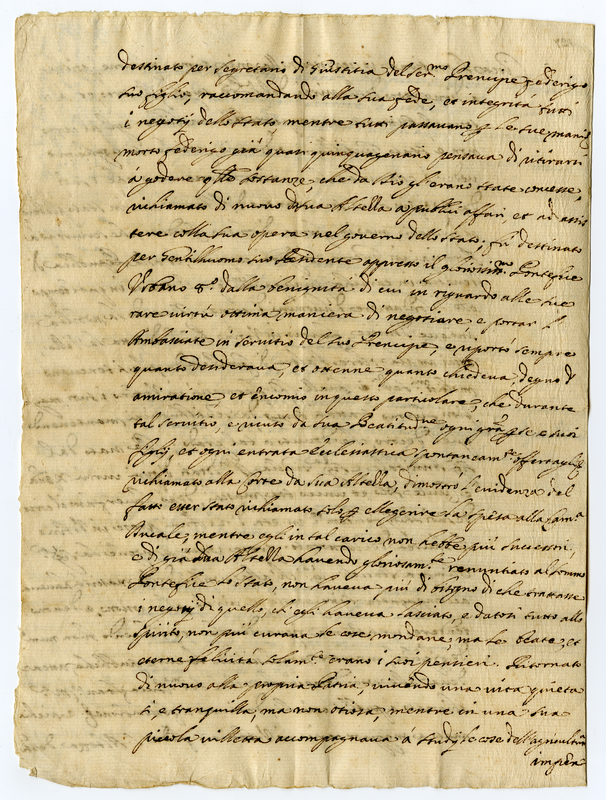 destinato per segretario di Giustitia del Ser.mo Prencipe Federigo
suo figlio, raccomandando alla sua fede, et integrita tutti
i negotij dello stato mentre tutti passavano p le sue mani
morto Federigo già quasi quinquagenario pensava di ritirarsi
à godere qlle sostanze, che da Dio gl'erano state concesse,
richiamato di nuovo da sua Altezza a publici affari, et ad assis
tere colla sua opera nel governo dello stato; fù destinato
per Gentilhuomo suo Residente appresso il gloriosiss.mo Pontefice
Urbano 8.o dalla benignita di cui in riguardo alle sue
rare virtù ottima maniera di negotiare, e portar l'
Ambasciate in servitio del suo Prencipe, e riportò sempre
quanto desiderava, et ottenne quanto chiedeva, degno d'
amiratione, et Encomio in questo particolare, che durante
tal servitio, e rifiutò da sua Beatitud.ne ogni gra p se e suoi
figlj, et ogni entrata Ecclesiastica spontaneam.te offertagli
richiamato alla Corte da sua Altezza, dimostrò l'evidenza del
fatto esser stato richiamato solo p allegerire la spesa alla Cam.a
Ducale, mentre egli in tal carico non hebbe più successori,
e di già sua Altezza havendo gloriosam.te renuntiato al sommo
Pontefice lo stato, non haveva più di bisogno di che trattasse
i negotij di quello, ch'egli haveva lasciato, e datosi tutto allo
spirito, non più curava le cose mondane; ma le beate, et
eterne felicità solam.te erano i suoi pensieri. Ritornato
di nuovo alla propria Patria vivendo una vita quieta
e tranquilla, ma non otiosa, mentre in una sua
piccola villetta accompagnava à studij le cose dell'agricoltura